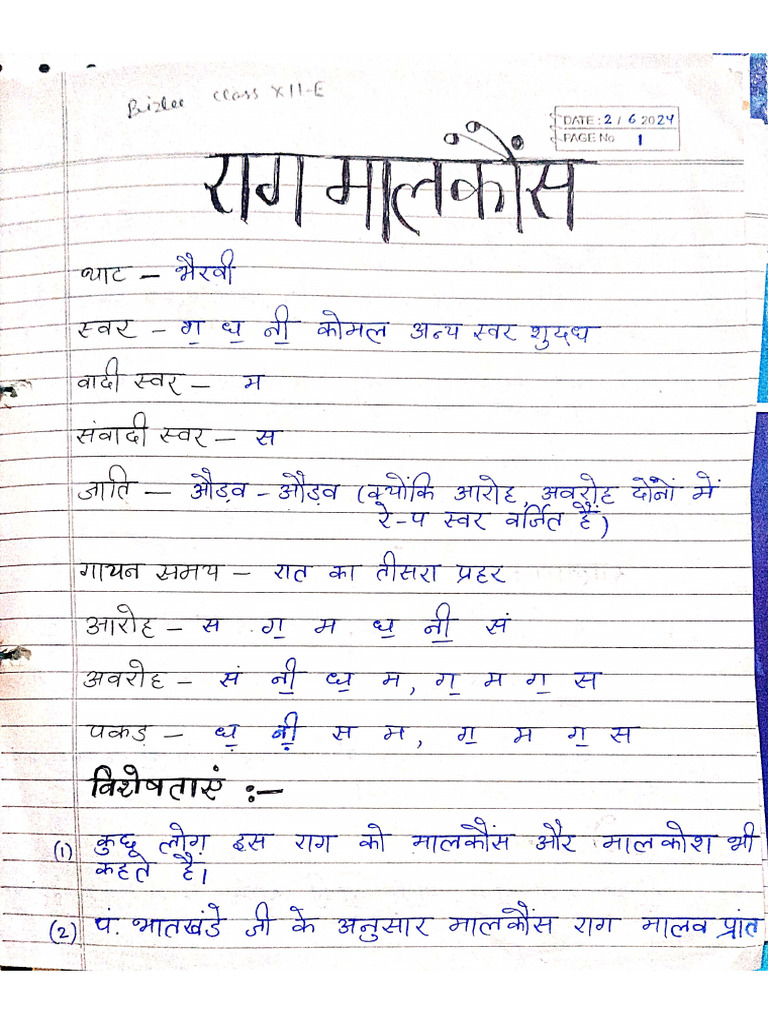 Bizlee class XII-E
DATE: 2/6 2024
PAGE No 1
राग मालकौंस
थाट – भैरवी
स्वर – ग॒ ध॒ नी॒ कोमल अन्य स्वर शुद्ध
वादी स्वर – म
संवादी स्वर – स
जाति – औड़व – औड़व (क्योंकि आरोह, अवरोह दोनों में
रे-प स्वर वर्जित हैं)
गायन समय – रात का तीसरा प्रहर
आरोह – स ग॒ म ध॒ नी॒ सं
अवरोह – सं नी॒ ध॒ म, ग॒ म ग॒ स
पकड़ – ध़॒ नी़॒ स म, ग॒ म ग॒ स
विशेषताएं :–
(1) कुछ लोग इस राग को मालकौंस और मालकोश भी
कहते है।
(2) पं. भातखंडे जी के अनुसार मालकौंस राग मालव प्रांत